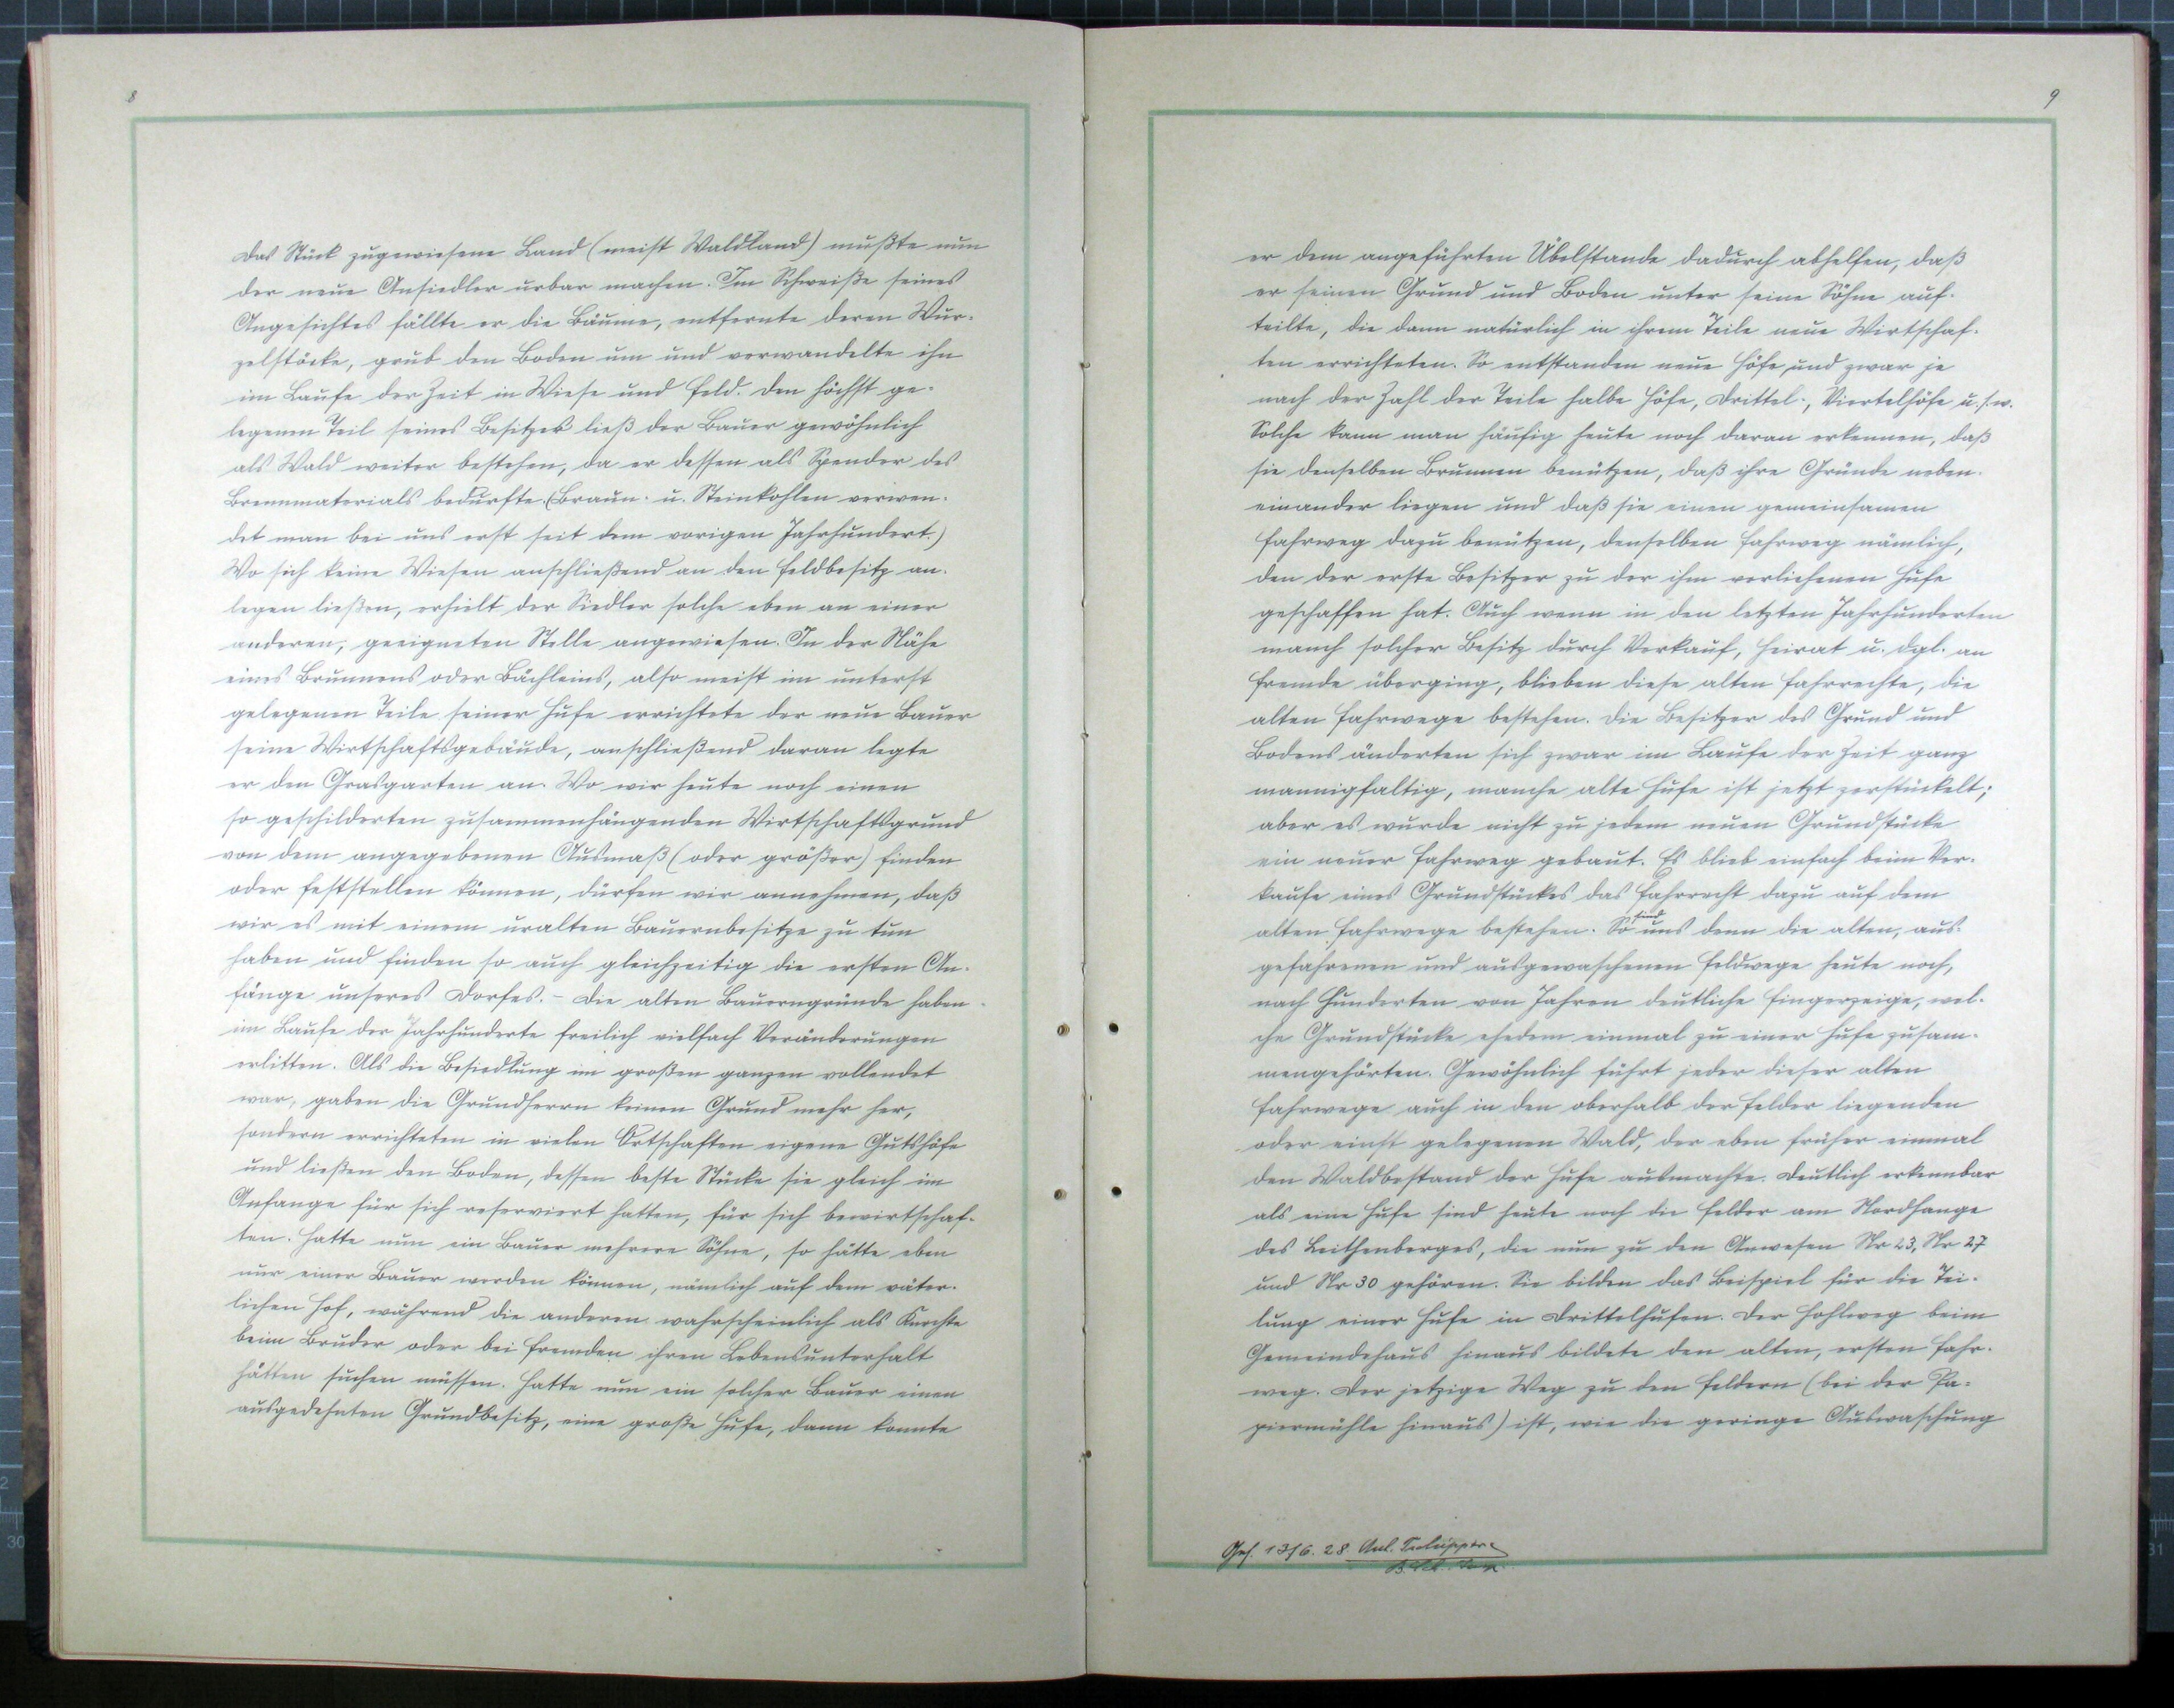 8
Das Stück zugewiesene Land (meist Waldland) mußte nun
der neue Ansiedler urbar machen. Im Schweiße seines
Angesichtes fällte er die Bäume, entfernte deren Wur-
zelstöcke, grub den Boden um und verwandelte ihn
im Laufe der Zeit in Wiese und Feld. Den höchst ge-
legenen Teil seines Besitzes ließ der Bauer gewöhnlich
als Wald weiter bestehen, da er dessen als Spender des
Brennmaterials bedurfte. (Braun- u. Steinkohlen verwen-
det man bei uns erst seit dem vorigen Jahrhundert.)
Wo sich keine Wiesen anschließend an den Feldbesitz an-
legen ließen, erhielt der Siedler solche eben an einer
anderen, geeigneten Stelle angewiesen. In der Nähe
eines Brunnens oder Bächleins, also meist im unterst
gelegenen Teile seiner Hufe errichtete der neue Bauer
seine Wirtschaftsgebäude, anschließend daran legte
er den Grasgarten an. Wo wir heute noch einen
so geschilderten zusammenhängenden Wirtschaftsgrund
von dem angegebenen Ausmaß (oder größer) finden
oder feststellen können, dürfen wir annehmen, daß
wir es mit einem uralten Bauernbesitze zu tun
haben und finden so auch gleichzeitig die ersten An-
fänge unseres Dorfes. - Die alten Bauerngründe haben
im Laufe der Jahrhunderte freilich vielfach Veränderungen
erlitten. Als die Besiedlung im großen ganzen vollendet
war, gaben die Grundherrn keinen Grund mehr her,
sondern errichteten in vielen Ortschaften eigene Gutshöfe
und ließen den Boden, dessen beste Stücke sie gleich im
Anfange für sich reserviert hatten, für sich bewirtschaf-
ten. Hatte nun ein Bauer mehrere Söhne, so hätte eben
nur einer Bauer werden können, nämlich auf dem väter-
lichen Hof, während die anderen wahrscheinlich als Knechte
beim Bruder oder bei Fremden ihren Lebensunterhalt
hätten suchen müssen. Hatte nun ein solcher Bauer einen
ausgedehnten Grundbesitz, eine große Hufe, dann konnte
9
er dem angeführten Übelstande dadurch abhelfen, daß
er seinen Grund und Boden unter seine Söhne auf-
teilte, die dann natürlich in ihrem Teile neue Wirtschaf-
ten errichteten. So entstanden neue Höfe und zwar je
nach der Zahl der Teile halbe Höfe, Drittel-, Viertelhöfe u.s.w.
Solche kann man häufig heute noch daran erkennen, daß
sie denselben Brunnen benützen, daß ihre Gründe neben-
einander liegen und daß sie einen gemeinsamen
Fahrweg dazu benützen, denselben Fahrweg nämlich,
den der erste Besitzer zu der ihm verliehenen Hufe
geschaffen hat. Auch wenn in den letzten Jahrhunderten
manch solcher Besitz durch Verkauf, Heirat u. dgl. an
Fremde überging, blieben diese alten Fahrrechte, die
alten Fahrwege bestehen. Die Besitzer des Grund und
Bodens änderten sich zwar im Laufe der Zeit ganz
mannigfaltig, manche alte Hufe ist jetzt zerstückelt;
aber es wurde nicht zu jedem neuen Grundstücke
ein neuer Fahrweg gebaut. Es blieb einfach beim Ver-
kaufe eines Grundstückes das Fahrrecht dazu auf dem
alten Fahrwege bestehen. So sind uns denn die alten, aus-
gefahrenen und ausgewaschenen Feldwege heute noch,
nach Hunderten von Jahren deutliche Fingerzeige, wel-
che Grundstücke ehedem einmal zu einer Hufe zusam-
mengehörten. Gewöhnlich führt jeder dieser alten
Fahrwege auch in den oberhalb der Felder liegenden
oder einst gelegenen Wald, der eben früher einmal
den Waldbestand der Hufe ausmachte. Deutlich erkennbar
als eine Hufe sind heute noch die Felder am Nordhange
des Leithenberges, die nun zu den Anwesen Nr 23, Nr 27
und Nr 30 gehören. Sie bilden das Beispiel für die Tei-
lung einer Hufe in Drittelhufen. Der Hohlweg beim
Gemeindehaus hinaus bildete den alten, ersten Fahr-
weg. Der jetzige Weg zu den Feldern (bei der Pa-
piermühle hinaus) ist, wie die geringe Auswaschung
Ges. 13/6. 28